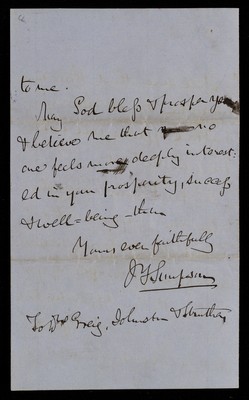 to me.
May God bless & prosper you
& believe me that no
one feels more deeply interest:
ed in your prosperity, success
& well=being than
Yours ever faithfully
J Y Simpson
To Drs Greig, Johnston & Struthers